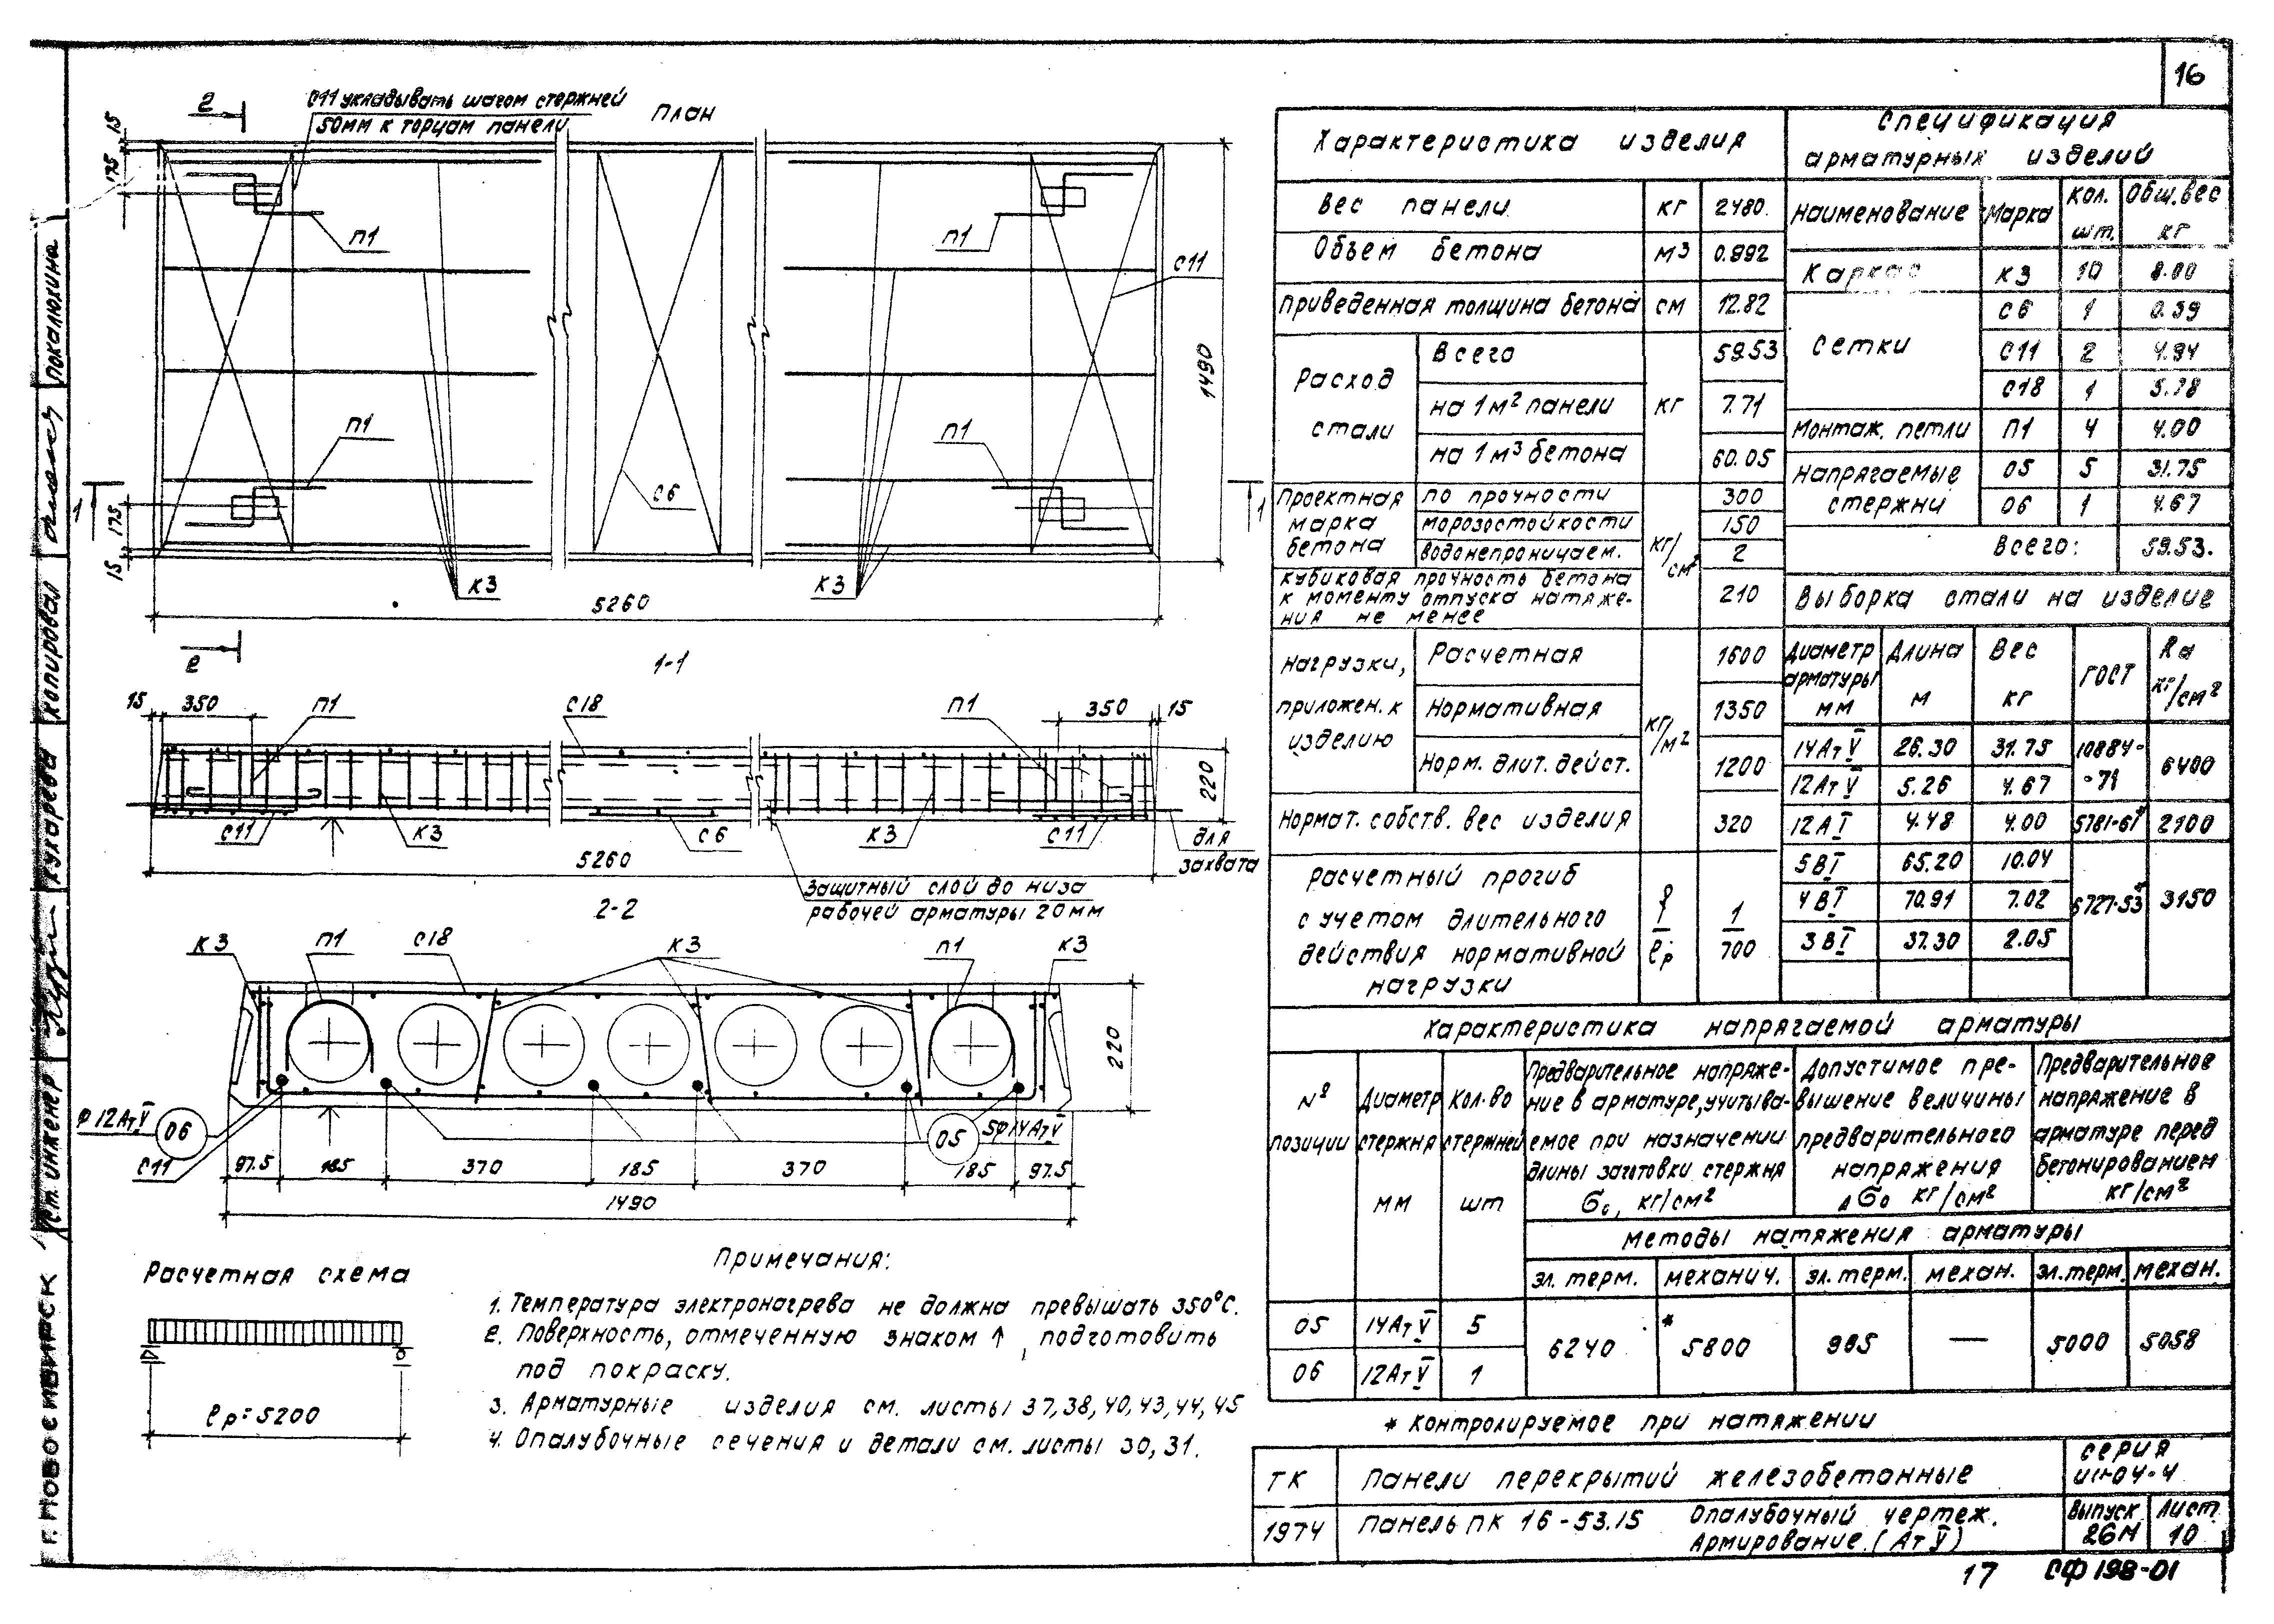 16
2
С11 укладывать шагом стержней
50мм к торцам панели
План
15
175
П1
П1
С11
1490
П1
П1
С6
1
1
175
15
К3
К3
5260
2
1-1
15
350
П1
С18
П1
350
15
220
С11
К3
С6
К3
С11
для
захвата
5260
Защитный слой до низа
рабочей арматуры 20мм
2-2
К3
П1
С18
К3
П1
К3
220
Ф12АтV
06
С11
05
5Ф14АтV
97.5
185
370
185
370
185
97.5
1490
Расчетная схема
ℓр=5200
Примечания:
1. Температура электронагрева не должна превышать 350°С.
2. Поверхность, отмеченную знаком ↑, подготовить
под покраску.
3. Арматурные изделия см. листы 37,38,40,43,44,45
4. Опалубочные сечения и детали см. листы 30,31.
Характеристика изделия
Вес панели кг 2480.
Объем бетона м3 0.992
Приведенная толщина бетона см 12.82
Расход стали кг
Всего 59.53
на 1м2 панели 7.71
на 1м3 бетона 60.05
Проектная марка бетона кг/см2
по прочности 300
морозостойкости 150
водонепроницаем. 2
Кубиковая прочность бетона
к моменту отпуска натяже-
ния не менее 210
Нагрузки, приложен. к изделию кг/м2
Расчетная 1600
Нормативная 1350
Норм. длит. дейст. 1200
Нормат. собств. вес изделия 320
Расчетный прогиб
с учетом длительного
действия нормативной
нагрузки
f/ℓр 1/700
Спецификация
арматурных изделий
Наименование Марка Кол. шт. Общ. вес кг
Каркас К3 10 8.00
Сетки
С6 1 0.39
С11 2 4.94
С18 1 5.78
Монтаж. петли П1 4 4.00
Напрягаемые стержни
05 5 31.75
06 1 4.67
Всего: 59.53.
Выборка стали на изделие
Диаметр арматуры мм Длина м Вес кг ГОСТ Ra кг/см2
14АтV 26.30 31.75 10884-71 6400
12АтV 5.26 4.67
12АI 4.48 4.00 5781-61* 2100
5ВI 65.20 10.04 6727-53* 3150
4ВI 70.91 7.02
3ВI 37.30 2.05
Характеристика напрягаемой арматуры
№ позиции
Диаметр стержня мм
Кол-во стержней шт
Предварительное напряже-
ние в арматуре, учитыва-
емое при назначении
длины заготовки стержня
σ₀, кг/см2
Допустимое пре-
вышение величины
предварительного
напряжения
Δσ₀ кг/см2
Предварительное
напряжение в
арматуре перед
бетонированием
кг/см2
Методы натяжения арматуры
эл. терм. механич. эл. терм. механ. эл. терм. механ.
05 14АтV 5
6240 *5800 985 — 5000 5058
06 12АтV 1
* Контролируемое при натяжении
ТК
1974
Панели перекрытий железобетонные
серия
ИИ-04-4
Панель ПК 16-53.15 Опалубочный чертеж.
Армирование (АтV)
Выпуск
26М
Лист
10
17 СФ 198-01
г. Новосибирск
Ст. инженер
Кухарева
Копировал
Покалюхина